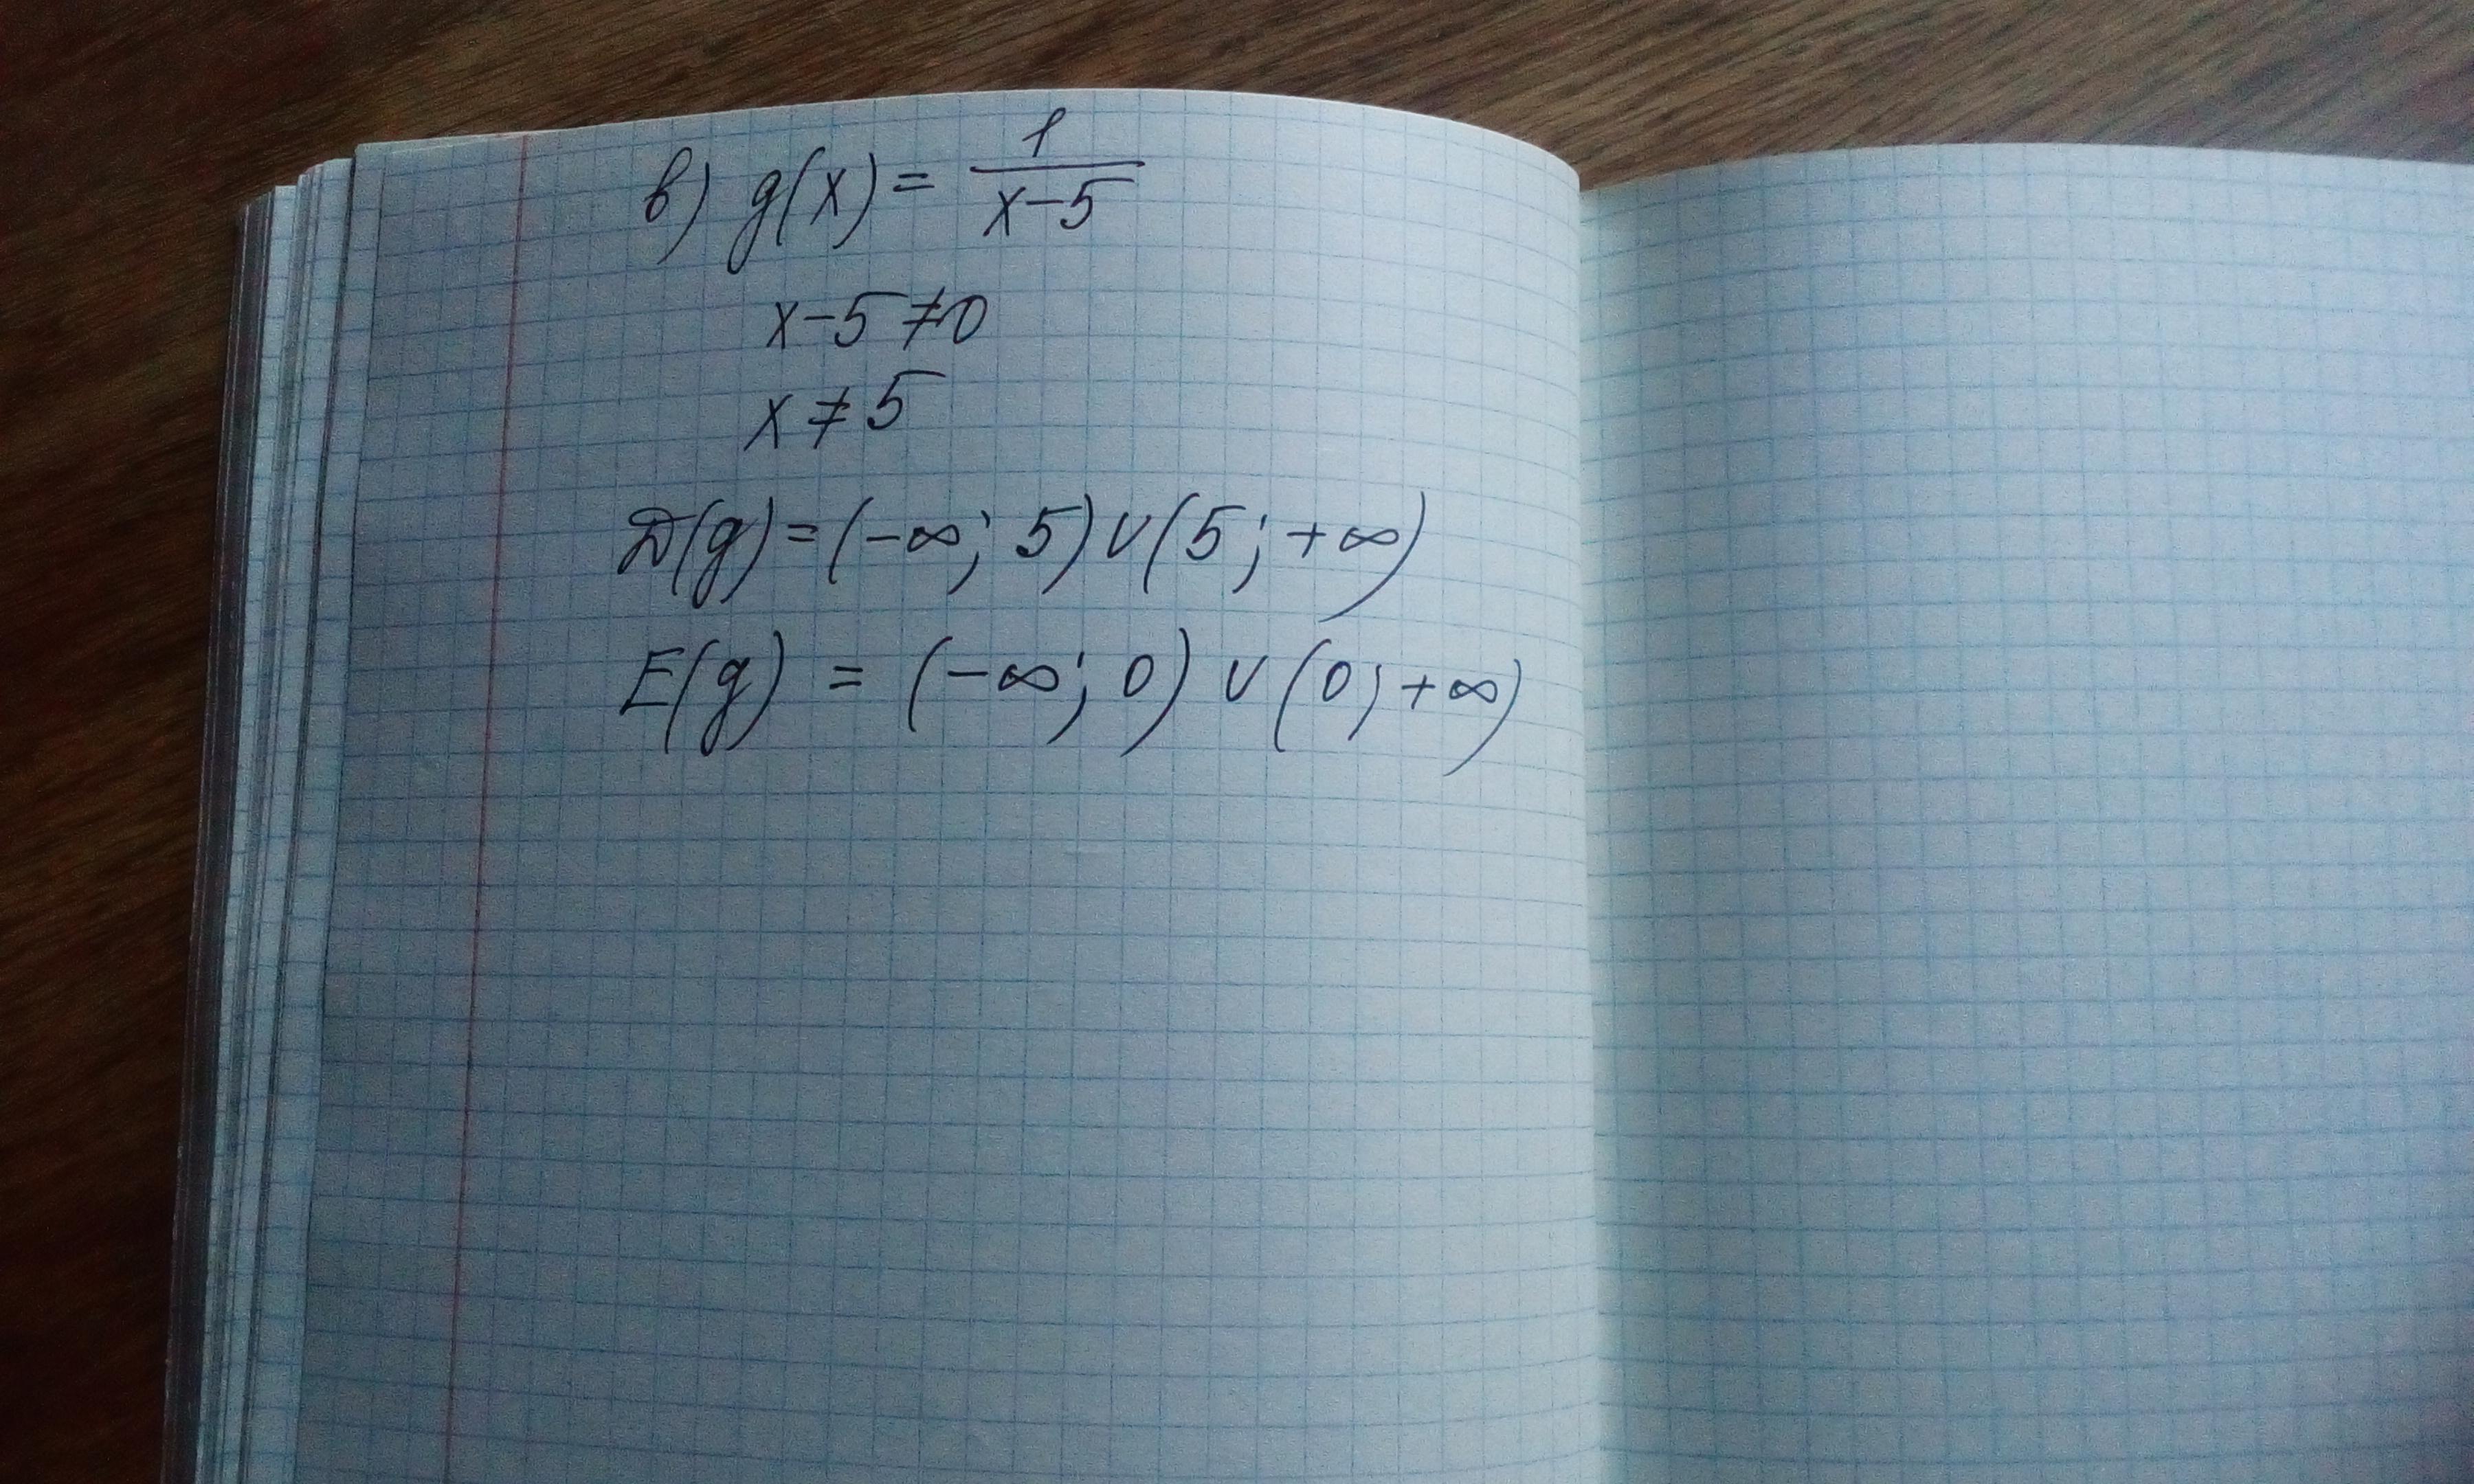 в) g(x) = 1/(x-5)
x-5≠0
x≠5
D(g)=(-∞; 5)∪(5; +∞)
E(g) = (-∞; 0) ∪ (0; +∞)